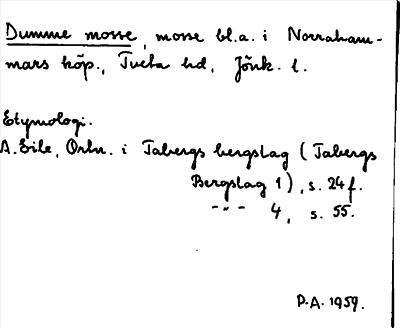 Dumme mosse, mosse bl.a. i Norraham-
mars köp., Tveta hd, Jönk. l.
Etymologi.
A. Eile, Ortn. i Tabergs bergslag (Tabergs
Bergslag 1), s. 24 f.
-"- 4, s. 55.
P.A. 1959.